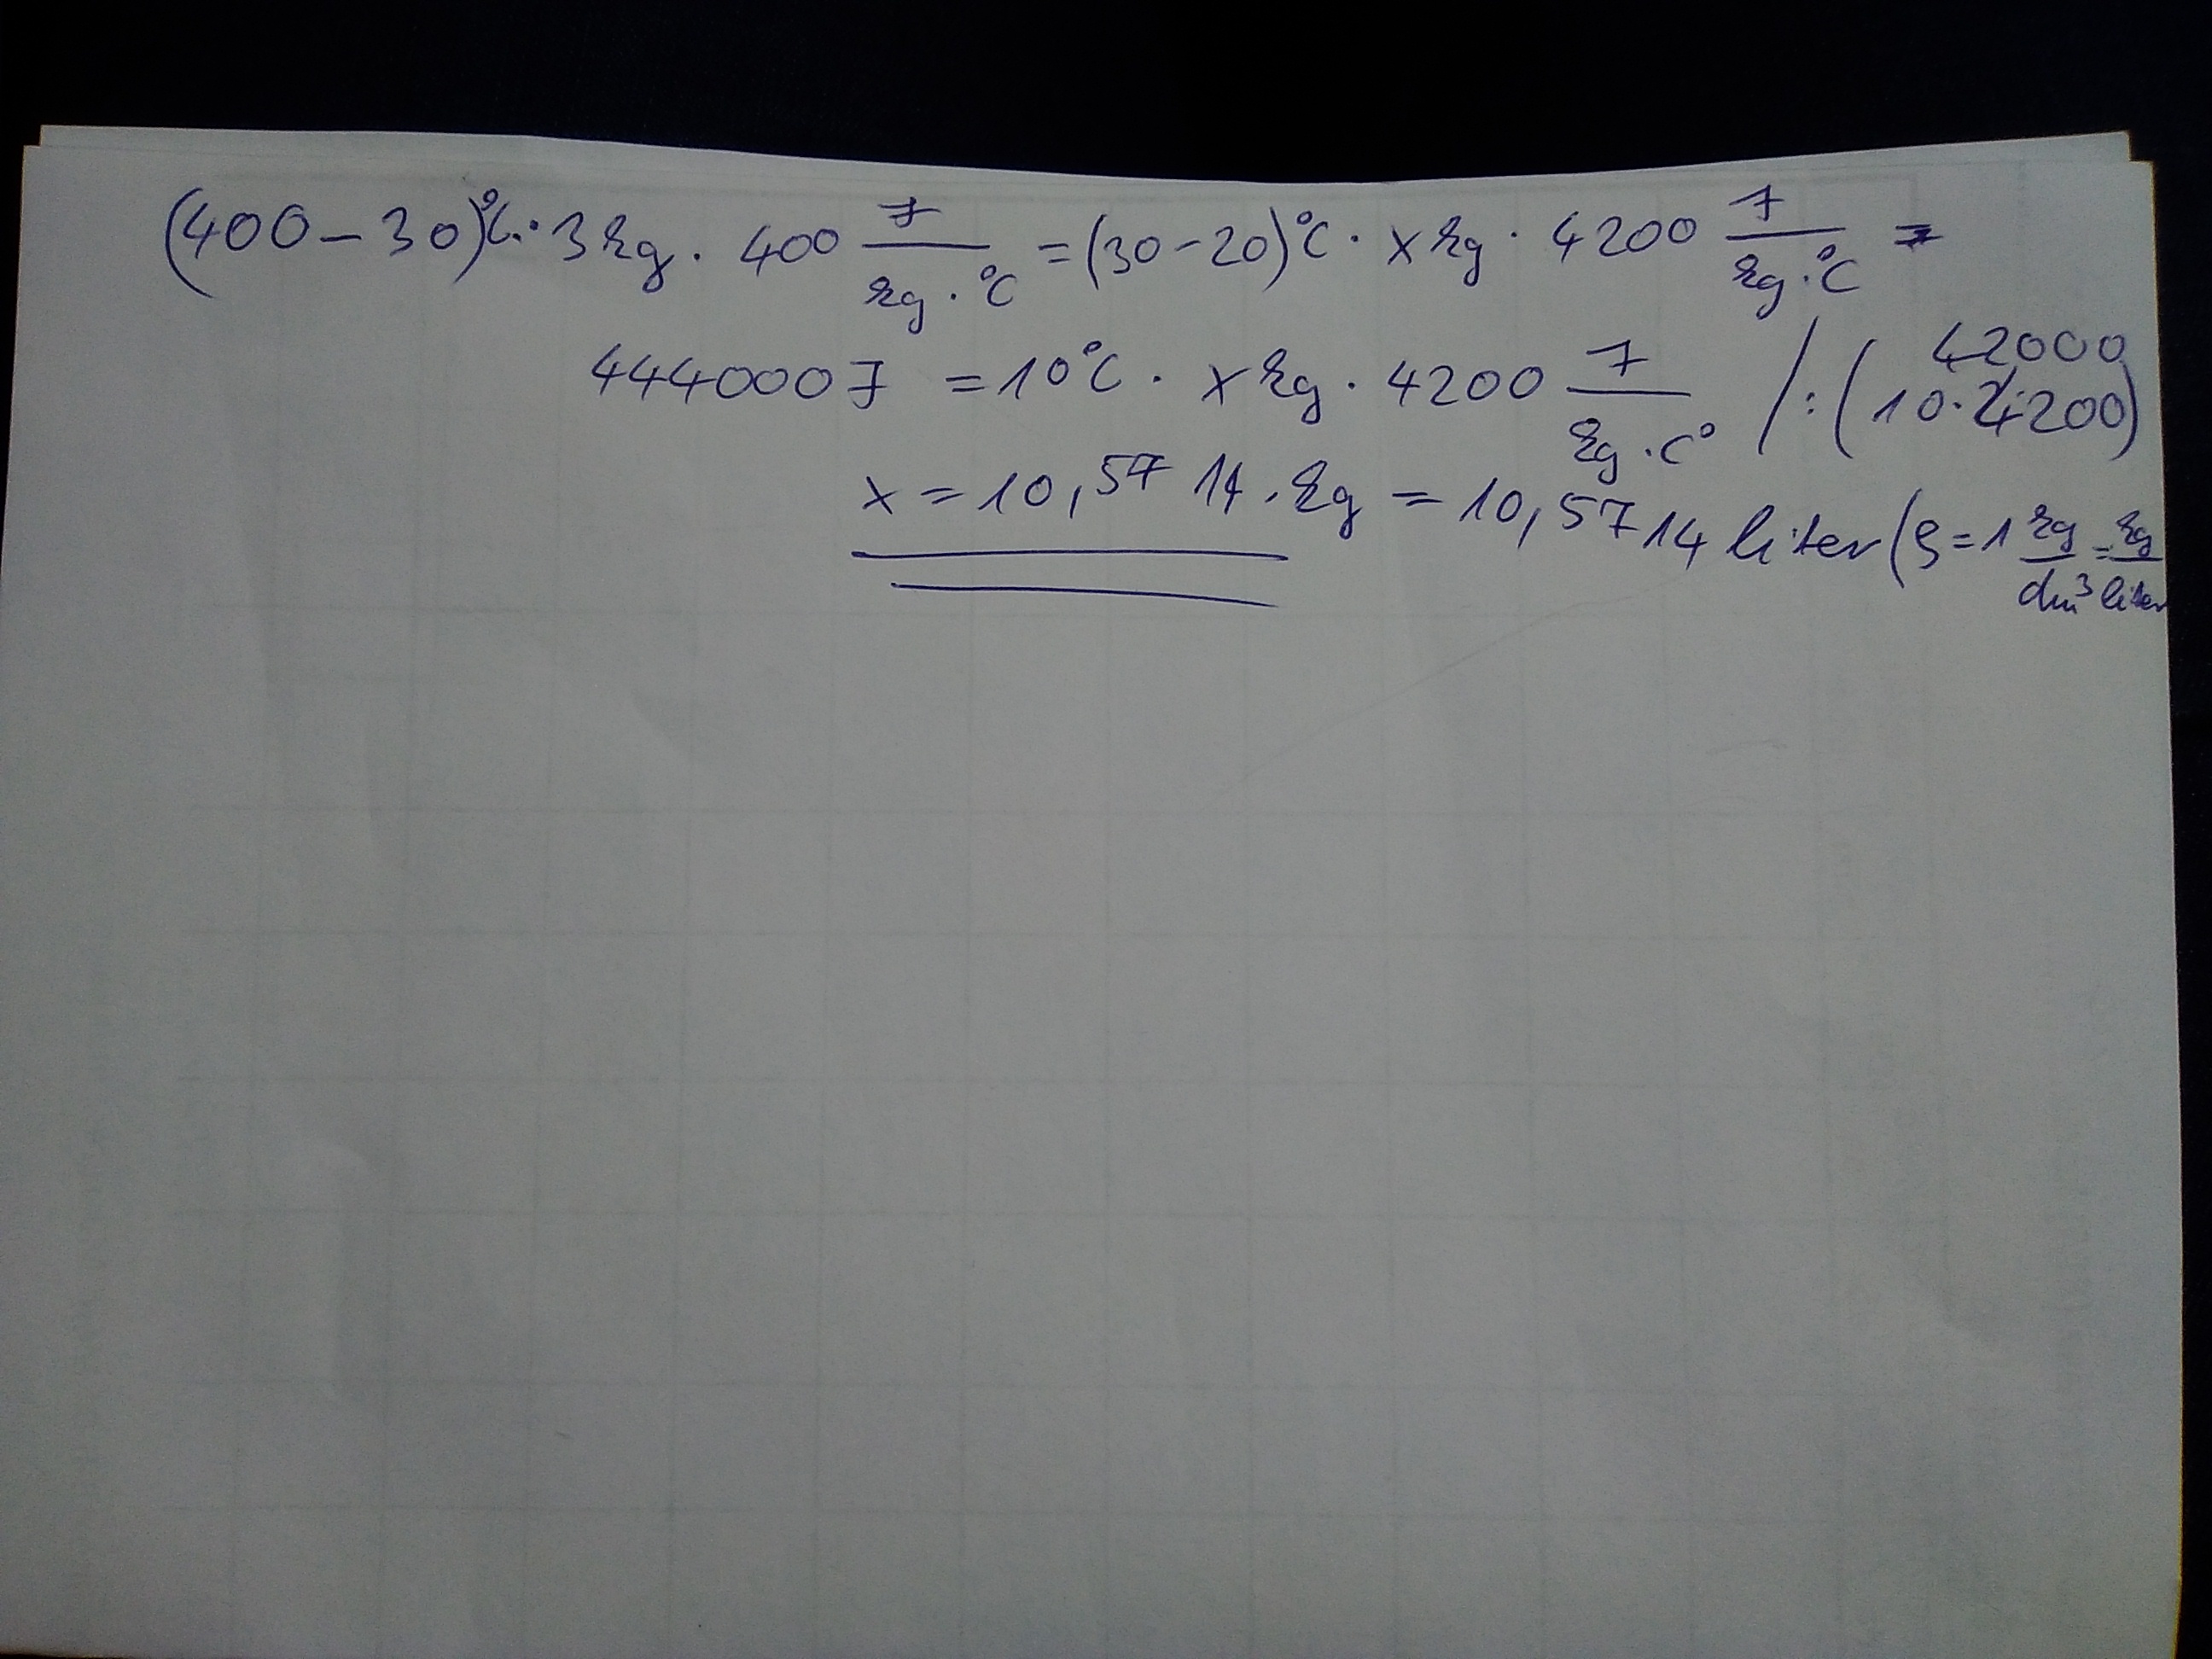 (400-30)°C · 3 kg · 400 J/(kg·°C) = (30-20)°C · x kg · 4200 J/(kg·°C) =
444000 J = 10°C · x kg · 4200 J/(kg·C°) / : (10·4200) 42000
x = 10,5714 · kg = 10,5714 liter (ρ = 1 kg/dm³ = kg/liter